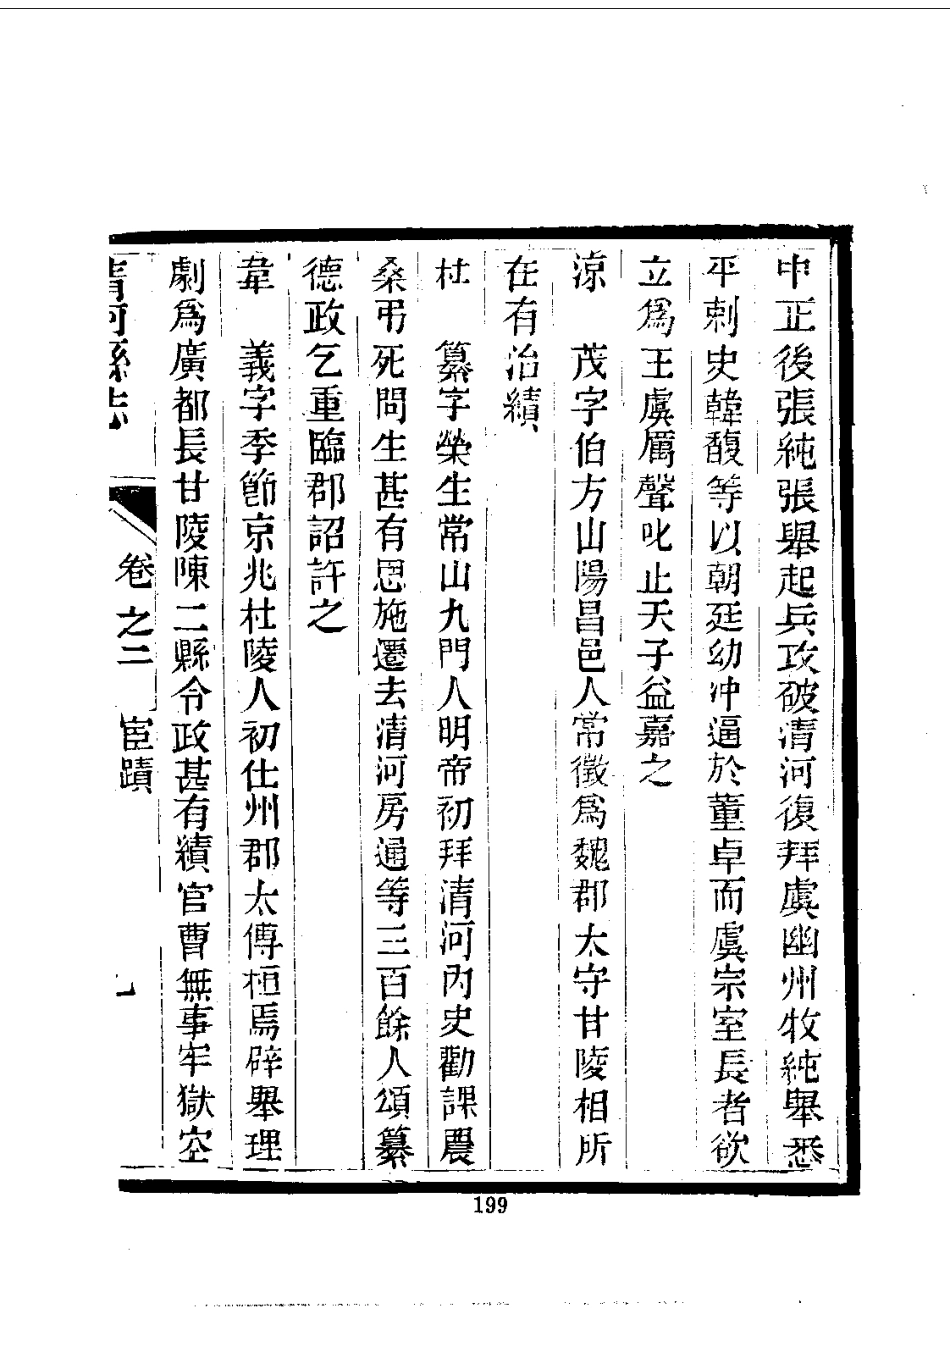 中正後張純張舉起兵攻破清河復拜虞幽州牧純舉悉
平刺史韓馥等以朝廷幼冲逼於董卓而虞宗室長者欲
立爲王虞厲聲叱止天子益嘉之
涼　茂字伯方山陽昌邑人常徵爲魏郡太守甘陵相所
在有治績
杜　纂字榮生常山九門人明帝初拜清河内史勸課農
桑弔死問生甚有恩施遷去清河房通等三百餘人頌纂
德政乞重臨郡詔許之
韋　義字季節京兆杜陵人初仕州郡太傅桓焉辟舉理
劇爲廣都長甘陵陳二縣令政甚有績官曹無事牢獄空
清河縣志　卷之二　宦蹟
199